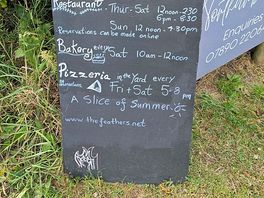 Restaurant - Thur-Sat 12noon-230
6pm-830
Sun 12noon-430pm
Reservations can be made online
Bakery every Sat 10am-12noon
Pizzeria in the Yard every
Fri + Sat 5-8pm
A Slice of Summer
www.thefeathers.net
Enquiries
07890 220